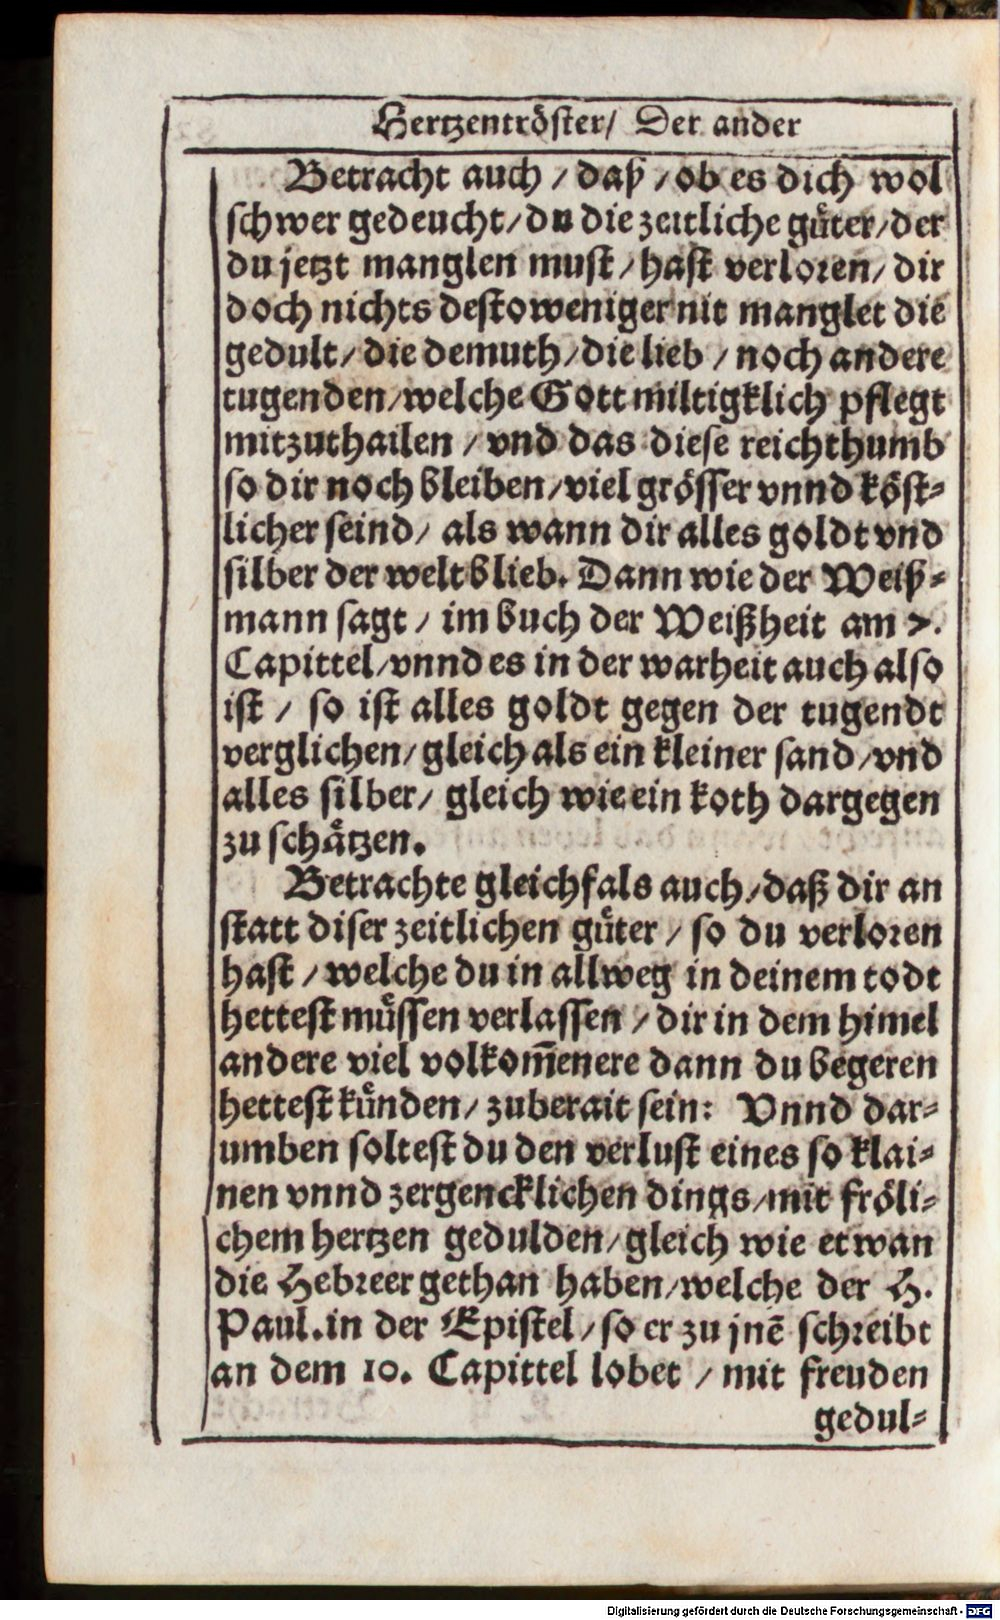 Hertzentröster/ Der ander
Betracht auch / daß / ob es dich wol
schwer gedeucht/ du die zeitliche güter/ der
du jetzt manglen must / hast verloren/ dir
doch nichts destoweniger nit manglet die
gedult/ die demuth/ die lieb / noch andere
tugenden/ welche Gott miltigklich pflegt
mitzuthailen / vnd das diese reichthumb
so dir noch bleiben/ viel grösser vnnd köst-
licher seind/ als wann dir alles goldt vnd
silber der welt blieb. Dann wie der Weiß-
mann sagt / im buch der Weißheit am 7.
Capittel/ vnnd es in der warheit auch also
ist / so ist alles goldt gegen der tugendt
verglichen/ gleich als ein kleiner sand/ vnd
alles silber/ gleich wie ein koth dargegen
zu schätzen.
Betrachte gleichfals auch/ daß dir an
statt diser zeitlichen güter / so du verloren
hast / welche du in allweg in deinem todt
hettest müssen verlassen / dir in dem himel
andere viel volkom̄enere dann du begeren
hettest künden/ zuberait sein: Vnnd dar-
umben soltest du den verlust eines so klai-
nen vnnd zergencklichen dings/ mit fröli-
chem hertzen gedulden/ gleich wie etwan
die Hebreer gethan haben/ welche der H.
Paul. in der Epistel/ so er zu jnē schreibt
an dem 10. Capittel lobet / mit freuden
gedul-
Digitalisierung gefördert durch die Deutsche Forschungsgemeinschaft - DFG